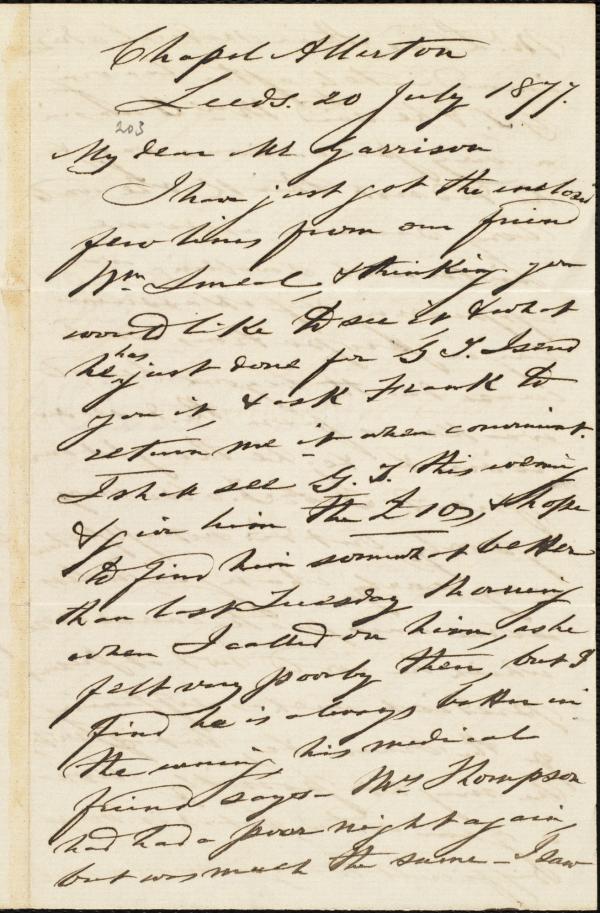 Chapel Allerton
Leeds. 20 July 1877.
203
My dear Mr Garrison
I have just got the enclosed
few lines from our friend
Wm Smeal, & thinking you
would like to see it, & what
he has just done for G. T. I send
you it, & ask Frank to
return me it when convenient.
I shall see G. T. this evening
& give him the £10, & hope
to find him somewhat better
than last Tuesday Morning
when I called on him, as he
felt very poorly then, but I
find he is always better in
the evening, his medical
friend says - Mrs Thompson
had had a poor night again,
but was much the same - I saw